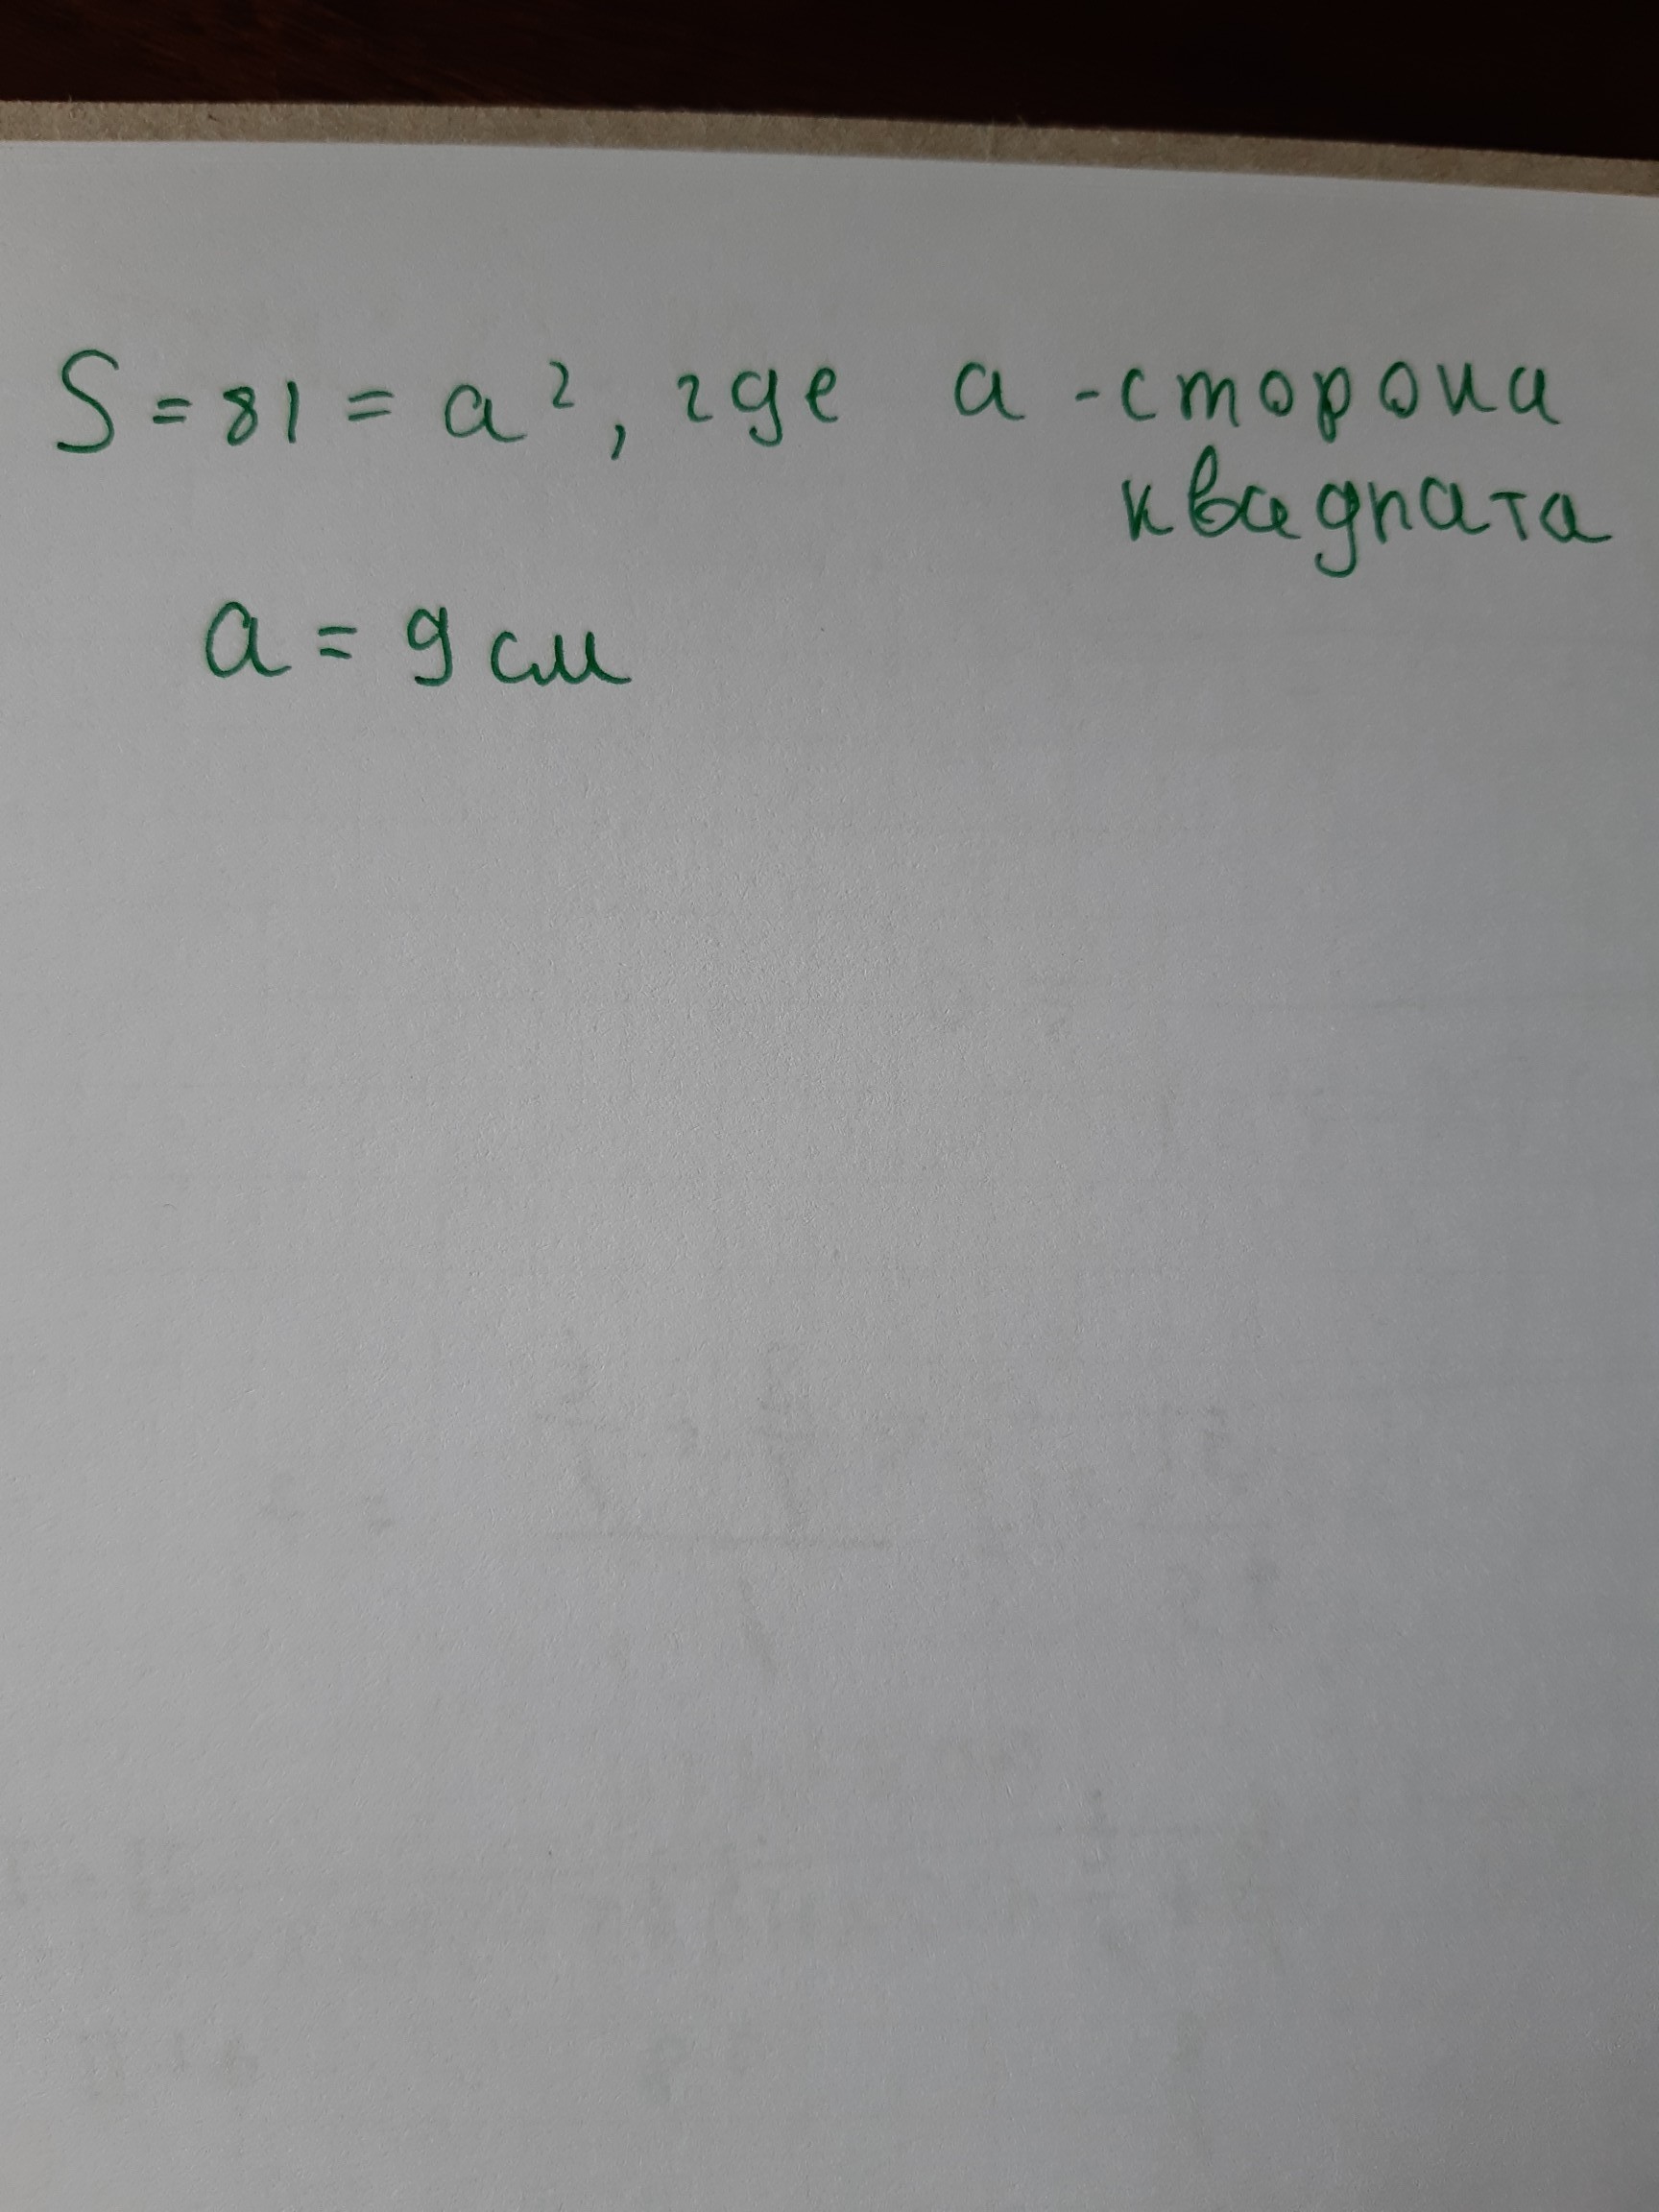 S = 81 = a², где a - сторона
квадрата
a = 9 см